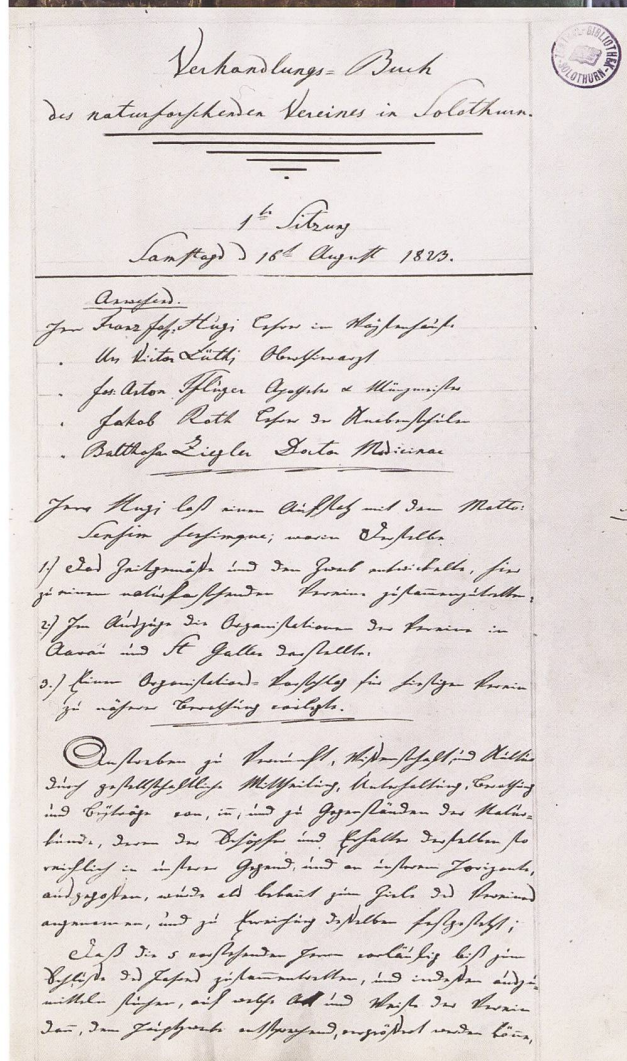 Verhandlungs= Buch
des naturforschenden Vereines in Solothurn.
ZENTRAL-BIBLIOTHEK
SOLOTHURN
1te Sitzung
Samstags d 16ten August 1823.
Anwesend.
Herr Franz Jos. Hugi Lehrer im Waysenhause
" Urs Victor Lüthi Oberthierarzt
" Jos. Anton Pflüger Apotheker & Münzmeister
" Jakob Roth Lehrer der Knabenschulen
" Balthasar Ziegler Doctor Medicinae
Herr Hugi las einen Aufsatz mit dem Motto:
Sensim sensimque; worin Derselbe
1.) Das Zeitgemäße und den Zweck entwickelte, hier
zu einem naturforschenden Vereine zusammenzutretten:
2.) Im Auszuge die Organisationen der Vereine in
Aarau und St Gallen darstellte.
3.) Einen Organisations=Vorschlag für hiesigen Verein
zu näherer Berathung vorlegte.
Anstreben zu Vernunft, Wissenschaft und Kultur
durch gesellschaftliche Mittheilung, Unterhaltung, Berathung
und Beyträge von, in, und zu Gegenständen der Natur=
kunde, deren der Schöpfer und Erhalter derselben so
reichlich in unserer Gegend, und an unserem Horizonte,
ausgegossen, wurde als bekannt zum Ziele des Vereins
angenommen, und zu Erreichung desselben festgesetzt;
Daß die 5 vorstehenden Herrn vorläufig biß zum
Schluße des Jahres zusammentretten, und indessen auszu=
mitteln suchen, auf welche Art und Weise der Verein
dann, dem Hauptzwecke entsprechend, vergrößert werden könne,